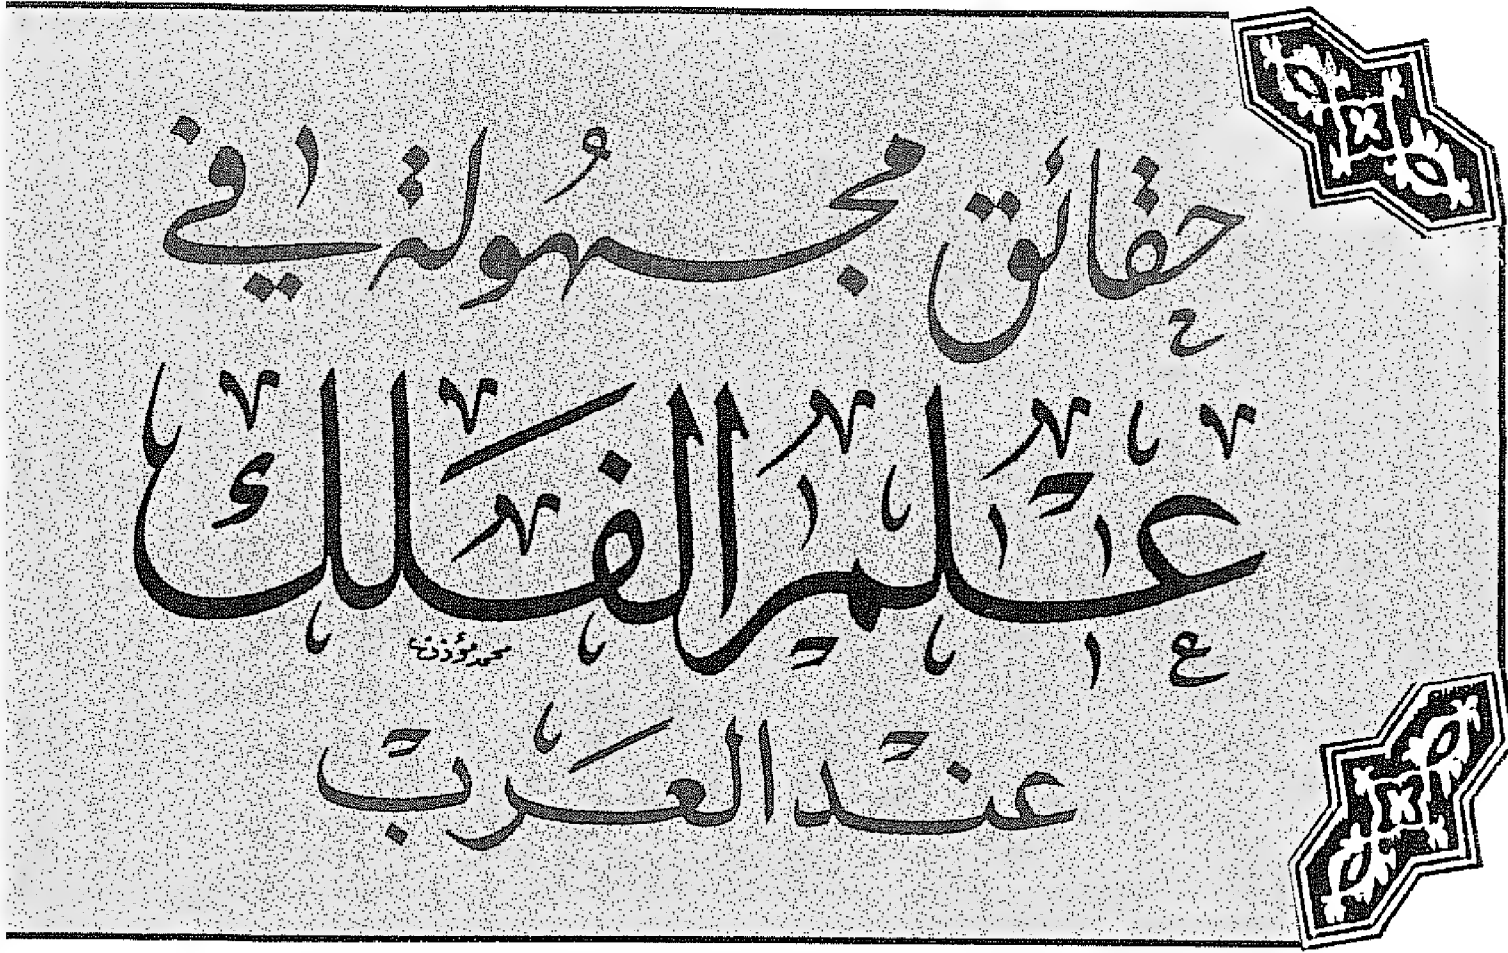 حقائق مجهولة في
علم الفلك
محمد مؤذن
عند العرب